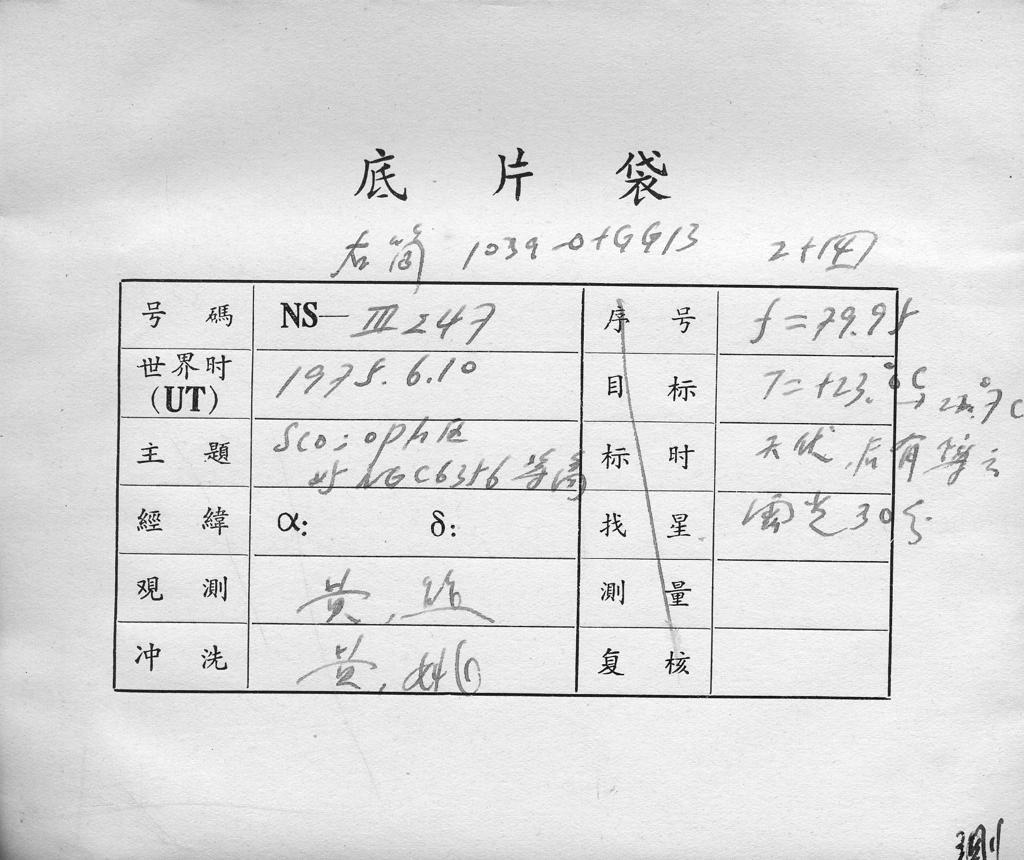 底 片 袋
右筒 103a-O+GG13 2+
号 碼 NS—III247 序 号 f=79.95
世界时 (UT) 1975.6.10 目 标 T=+23.°C → °7C
主 題 Sco; oph区 NGC6356等 标 时 天 后有 云
經 緯 α: δ: 找 星 露光30分
观 測 黄, 測 量
冲 洗 黄, 复 核
測